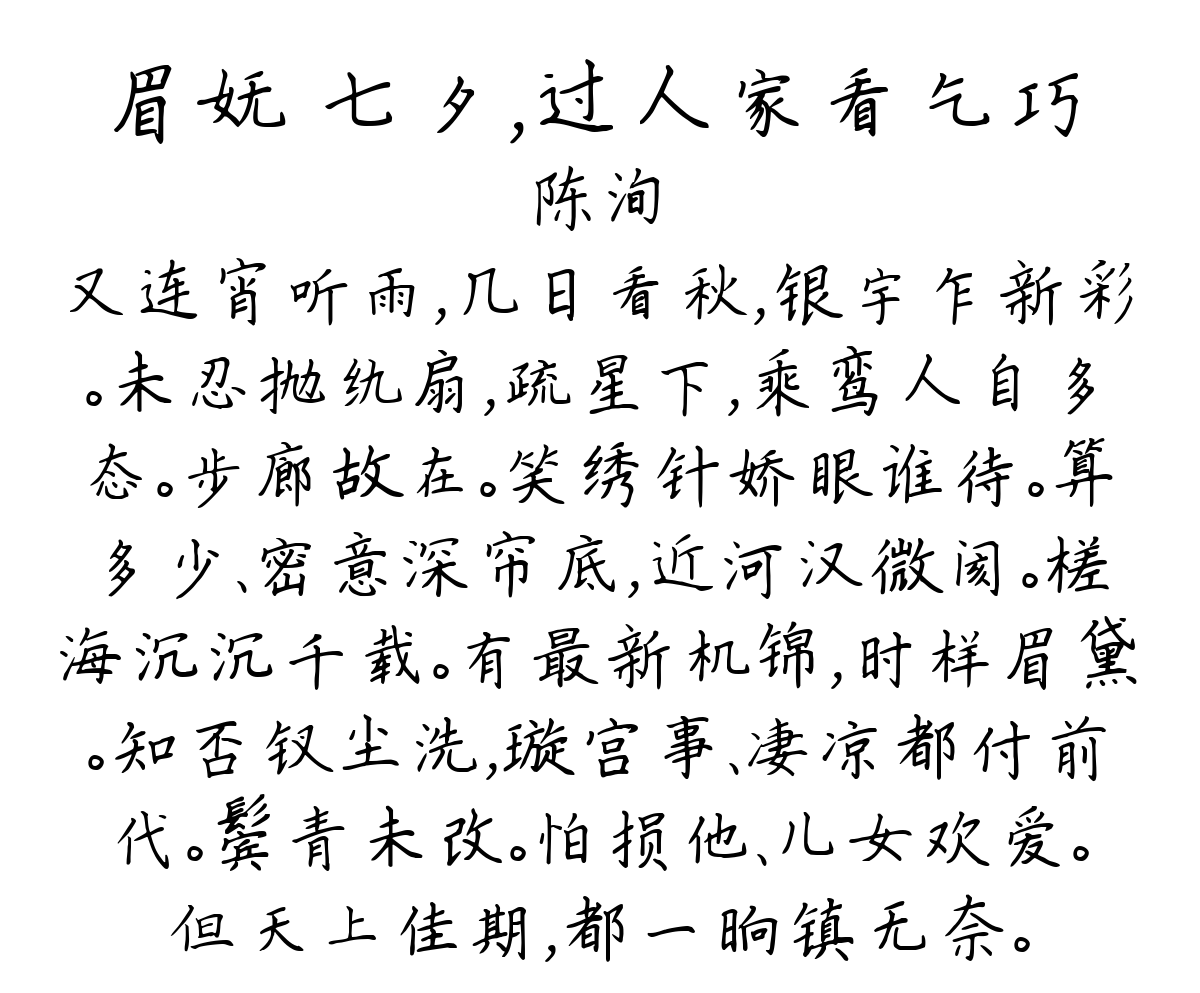 眉妩 七夕,过人家看乞巧
陈洵
又连宵听雨,几日看秋,银宇乍新彩
。未忍抛纨扇,疏星下,乘鸾人自多
态。步廊故在。笑绣针娇眼谁待。算
多少、密意深帘底,近河汉微阂。槎
海沉沉千载。有最新机锦,时样眉黛
。知否钗尘洗,璇宫事、凄凉都付前
代。鬓青未改。怕损他、儿女欢爱。
但天上佳期,都一晌镇无奈。